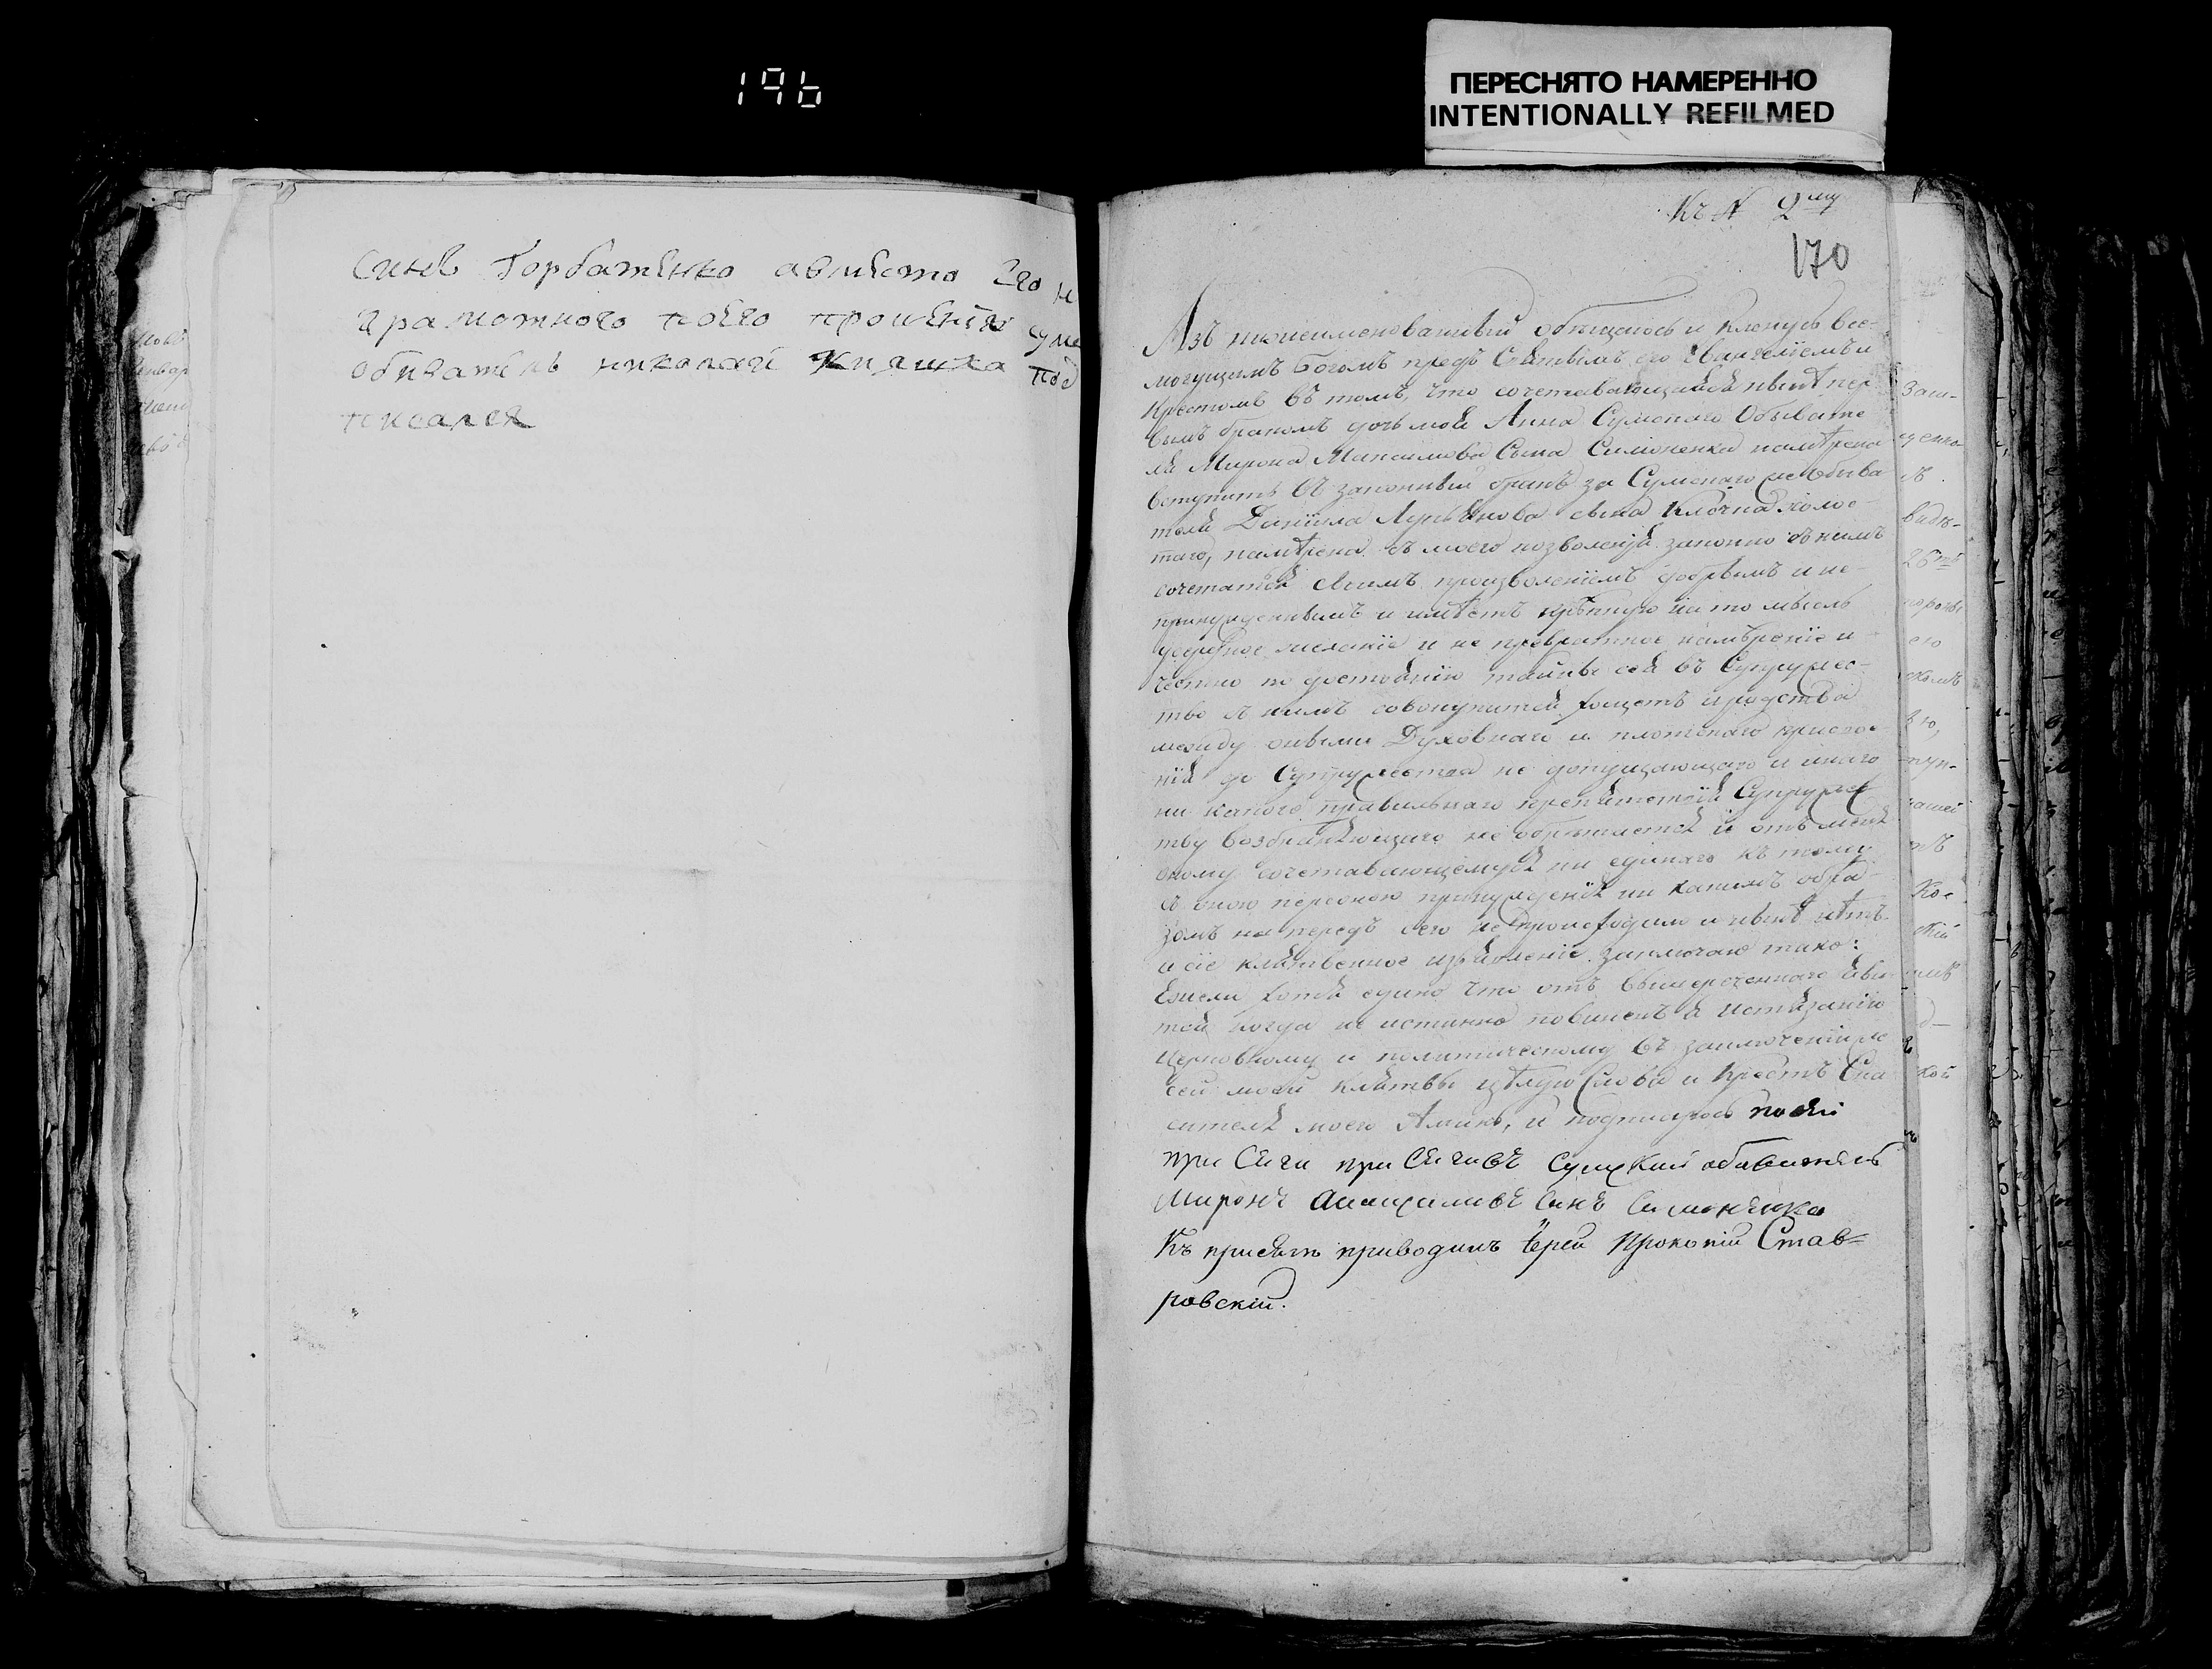 196
ПЕРЕСНЯТО НАМЕРЕННО
INTENTIONALLY REFILMED
синъ Горбатѣнко авмѣсто его не
грамотного поего прошенію суме
обивател николай Кияшко под
писался
Къ № 2му
170
Азъ нижеименованный обѣщаюсь и кленусь все-
могущимъ Богомъ предъ Святымъ его Евангелиемъ и
Крестомъ въ томъ, что сочетавающаяся ныне пер-
вымъ бракомъ дочь моя Анна Сумского Обывате-
ля Мирона Максимова Сына Симоненка намѣрена
вступить въ законный бракъ за Сумского же обыва
теля Даніила Лукянова сына Клочка холос-
таго, намѣрена съ моего позволенія законно съ нимъ
сочетатся своимъ произволеніемъ добрымъ и не-
принужденнымъ и имѣетъ крѣпкую на то мысль
усердное желаніе и не превратное намѣреніе и
честно по достоянію тайны сея въ Супружес-
тво съ нимъ совокупится хощетъ и родства
между оными Духовнаго и плотскаго присвое-
нія до Супружества не допущающаго и инаго
ни какого правильнаго препятствія Супружес
тву возбраняющаго не обрѣтается и отъ меня
оному сочетавающемуся ни единаго къ тому
съ оною персоною принужденія ни какимъ обра-
зомъ на передъ сего не происходило и ныне нѣтъ
и сіе клятвенное изъявленіе заключаю тако:
Ежели хотя едино что отъ вышереченнаго яви-
тся когда не истинно повиненъ я истязанію
церковному и политическому въ заключеніи же
сей моей клятвы цѣлую Слова и Крестъ Спа
сителя моего Аминь, и подписуюсь
при Сяги при Сягивъ Сумский обиватель
Миронъ Синъ Симонѣнко
Къ присягѣ приводилъ Іерей Прокопій Став=
ровскій.